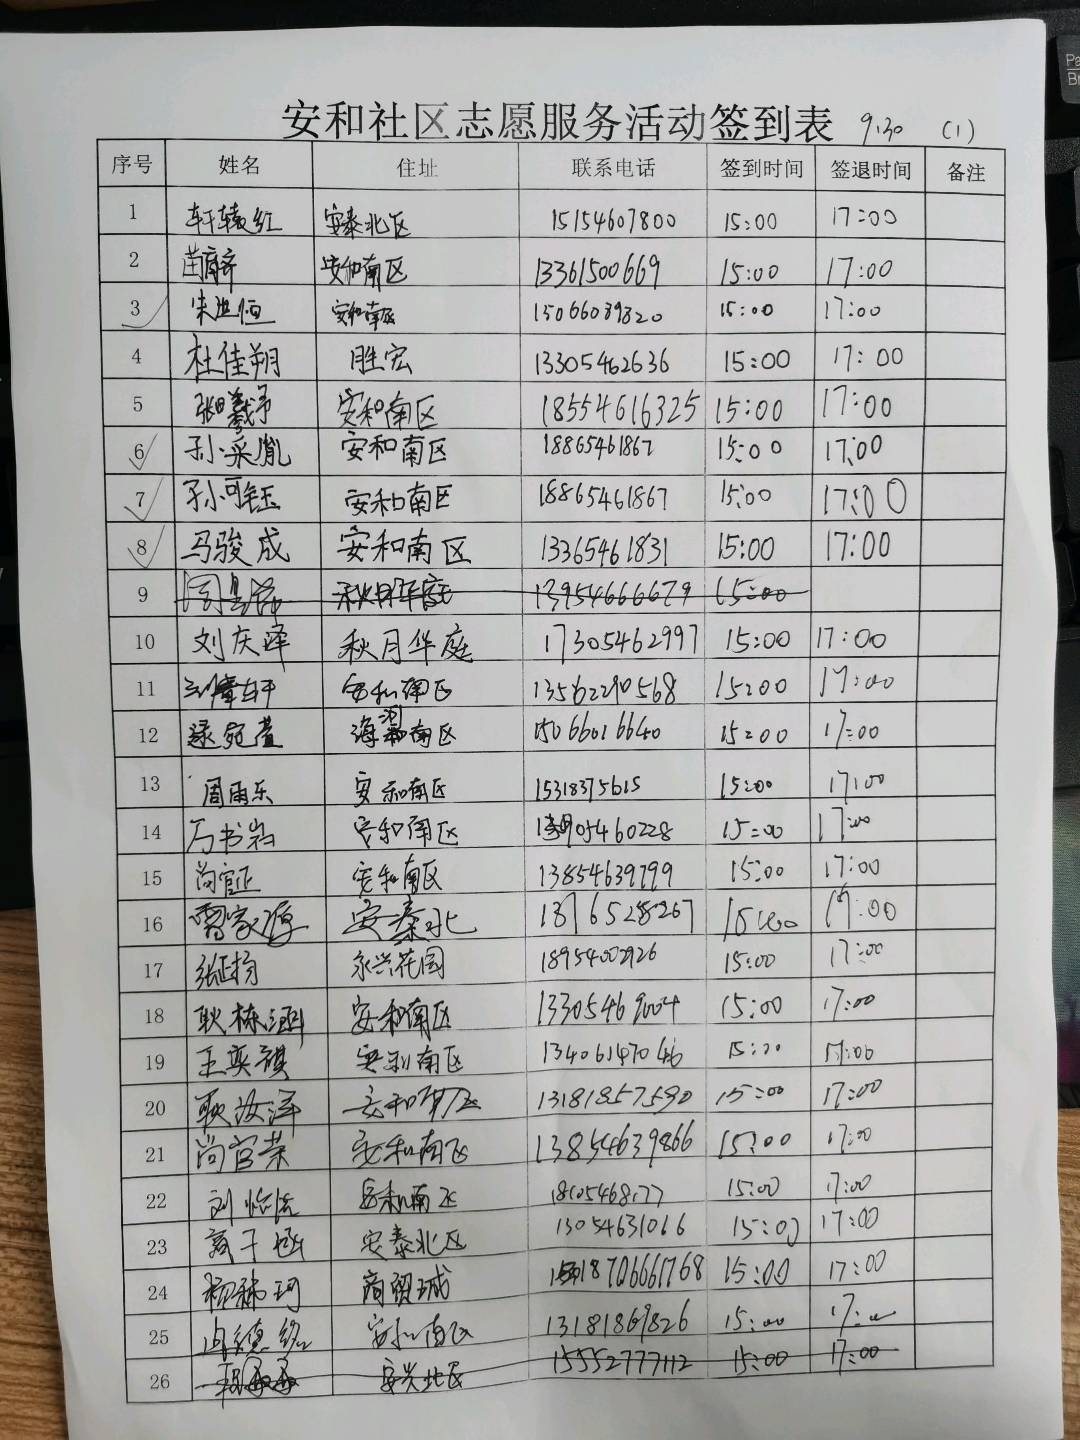 安和社区志愿服务活动签到表 9.30 (1)
序号 姓名 住址 联系电话 签到时间 签退时间 备注
1 轩辕红 安泰北区 15154607800 15:00 17:00
2 苗 安和南区 13361500669 15:00 17:00
3 朱 恒 安和南区 15066089820 15:00 17:00
4 杜佳朔 胜宏 13305462636 15:00 17:00
5 张曦予 安和南区 18554616325 15:00 17:00
6 孙采胤 安和南区 18865461867 15:00 17:00
7 孙可钰 安和南区 18865461867 15:00 17:00
8 马骏成 安和南区 13365461831 15:00 17:00
9 秋月华庭 13954666679 15:00
10 刘庆泽 秋月华庭 17305462997 15:00 17:00
11 安和南区 13562290568 15:00 17:00
12 南区 15066016640 15:00 17:00
13 周雨东 安和南区 15318375615 15:00 17:00
14 万书 安和南区 05460228 15:00 17:00
15 尚官正 安和南区 13854639799 15:00 17:00
16 家 安泰北 18765282267 17:00
17 张扬 永兴花园 18954002926 15:00 17:00
18 耿栋涵 安和南区 13305469004 15:00 17:00
19 王奕祺 安和南区 13406147046 15:00 17:00
20 耿汝泽 安和南区 13181857590 15:00 17:00
21 尚官荣 安和南区 13854639866 15:00 17:00
22 刘怡 安和南区 15:00 17:00
23 子涵 安泰北区 13054631066 15:00 17:00
24 杨 珂 商贸城 18706661768 15:00 17:00
25 安和南区 13181869826 15:00 17:00
26 安兴北区 15552777112 15:00 17:00